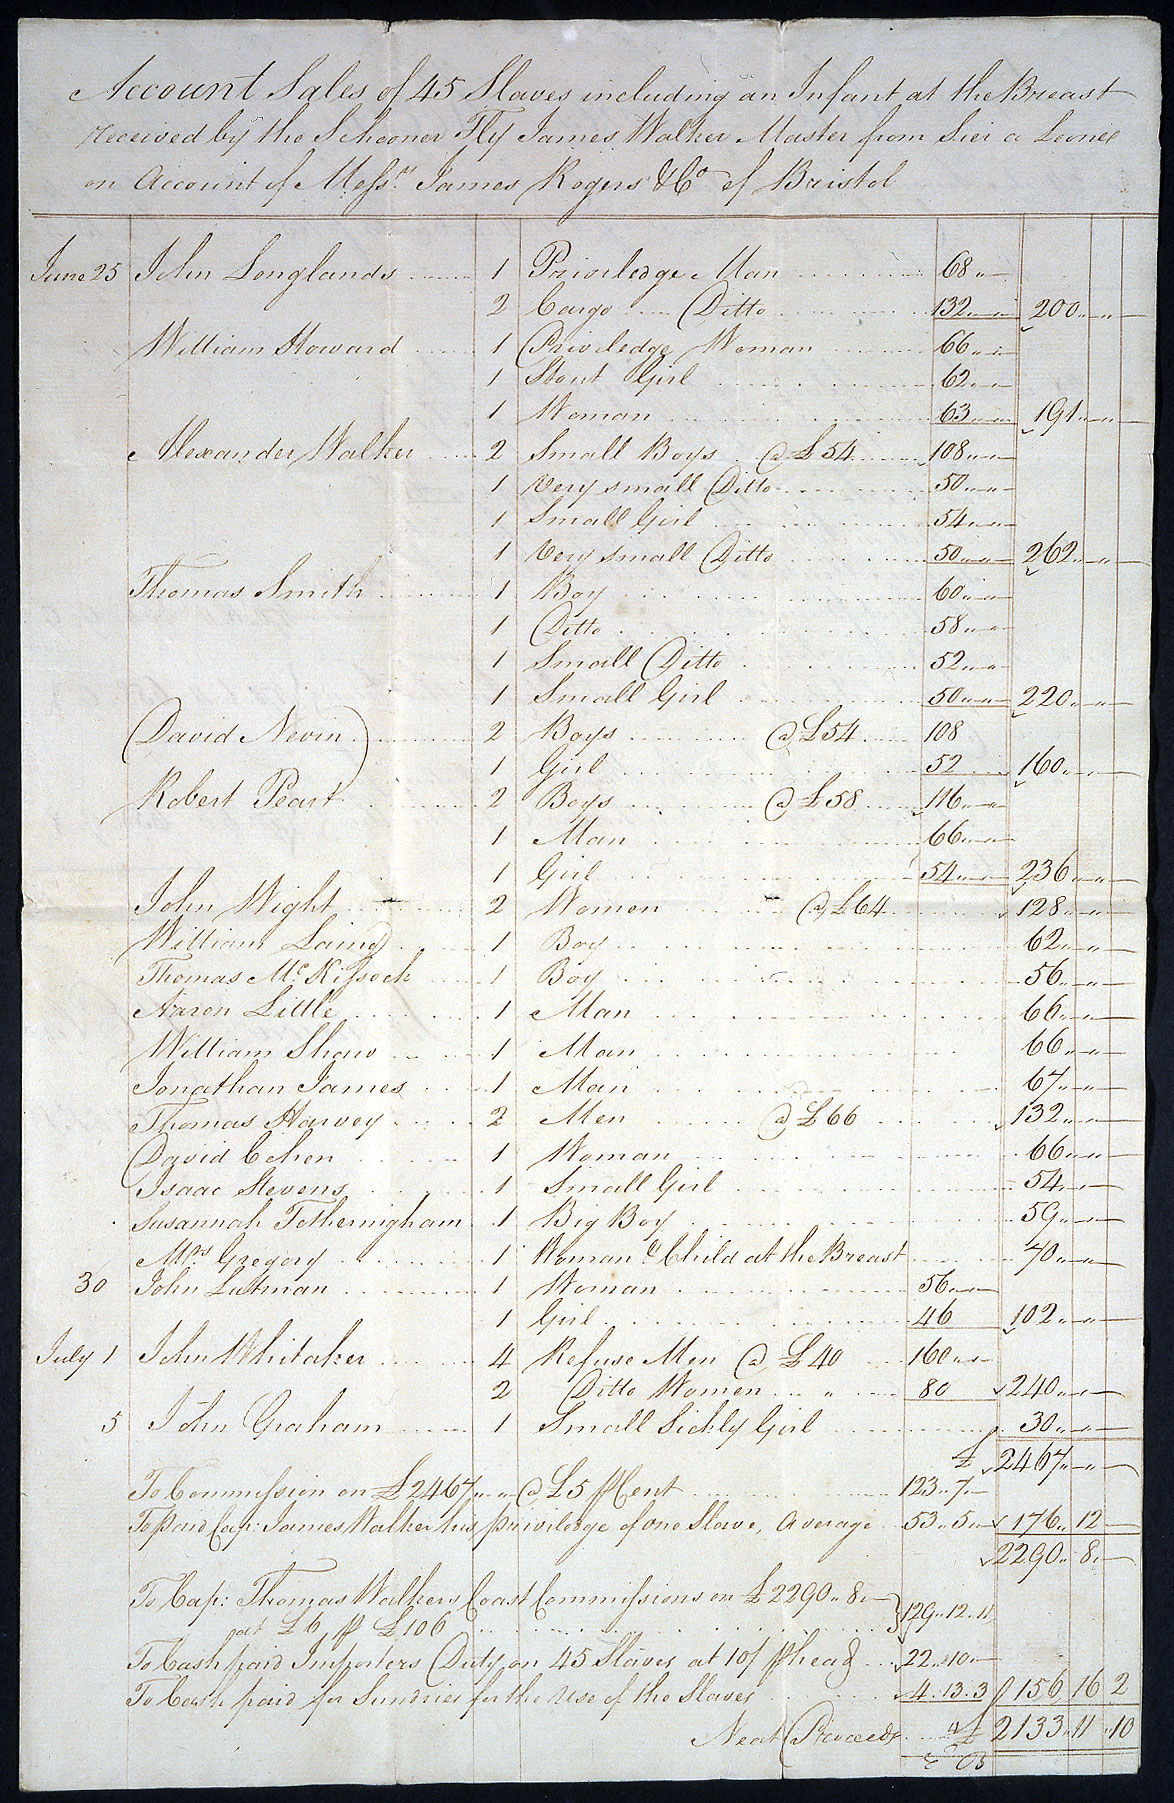 Account Sales of 45 Slaves including an Infant at the Breast
received by the Schooner Fly James Walker Master from Siera Leone
on Account of Messrs James Rogers & Co of Bristol
June 25 John Longlands 1 Priviledge Man 68 " —
2 Cargo Ditto 132 " — 200 " " —
William Howard 1 Priviledge Woman 66 " —
1 Stout Girl 62 " —
1 Woman 63 " — 191 " " —
Alexander Walker 2 Small Boys @ £54 108 " —
1 Very small Ditto 50 " —
1 Small Girl 54 " —
1 Very small Ditto 50 " — 262 " " —
Thomas Smith 1 Boy 60 " —
1 Ditto 58 " —
1 Small Ditto 52 " —
1 Small Girl 50 " — 220 " " —
David Nevin 2 Boys @ £54 108
1 Girl 52 160 " " —
Robert Peart 2 Boys @ £58 116 " —
1 Man 66 " —
1 Girl 54 " — 236 " " —
John Wight 2 Women @ £64 128 " " —
William Laing 1 Boy 62 " " —
Thomas McKissock 1 Boy 56 " " —
Aaron Little 1 Man 66 " " —
William Shaw 1 Man 66 " " —
Jonathan James 1 Man 67 " " —
Thomas Harvey 2 Men @ £66 132 " " —
David Cohen 1 Woman 66 " " —
Isaac Stevens 1 Small Girl 54 " " —
Susannah Fotheringham 1 Big Boy 59 " " —
Mrs Gregory 1 Woman & Child at the Breast 70 " " —
30 John Latman 1 Woman 56 " —
1 Girl 46 102 " " —
July 1 John Whitaker 4 Refuse Men @ £40 160 " —
2 Ditto Women " 80 240 " " —
5 John Graham 1 Small Sickly Girl 30 " " —
£ 2467 " " —
To Commission on £2467 " " @ £5 P Cent 123 " 7 " —
To paid Cap: James Walker his priviledge of one Slave, Average 53 " 5 " — 176 " 12 —
2290 " 8 " —
To Cap: Thomas Walkers Coast Commissions on £2290 " 8 " —
at £6 P £106 129 " 12 " 11
To Cash paid Importers Duty on 45 Slaves at 10/ P head 22 " 10 " —
To Cash paid for Sundries for the use of the Slaves 4 " 13 " 3 156 16 2
Neat Proceeds £ 2133 " 11 " 10